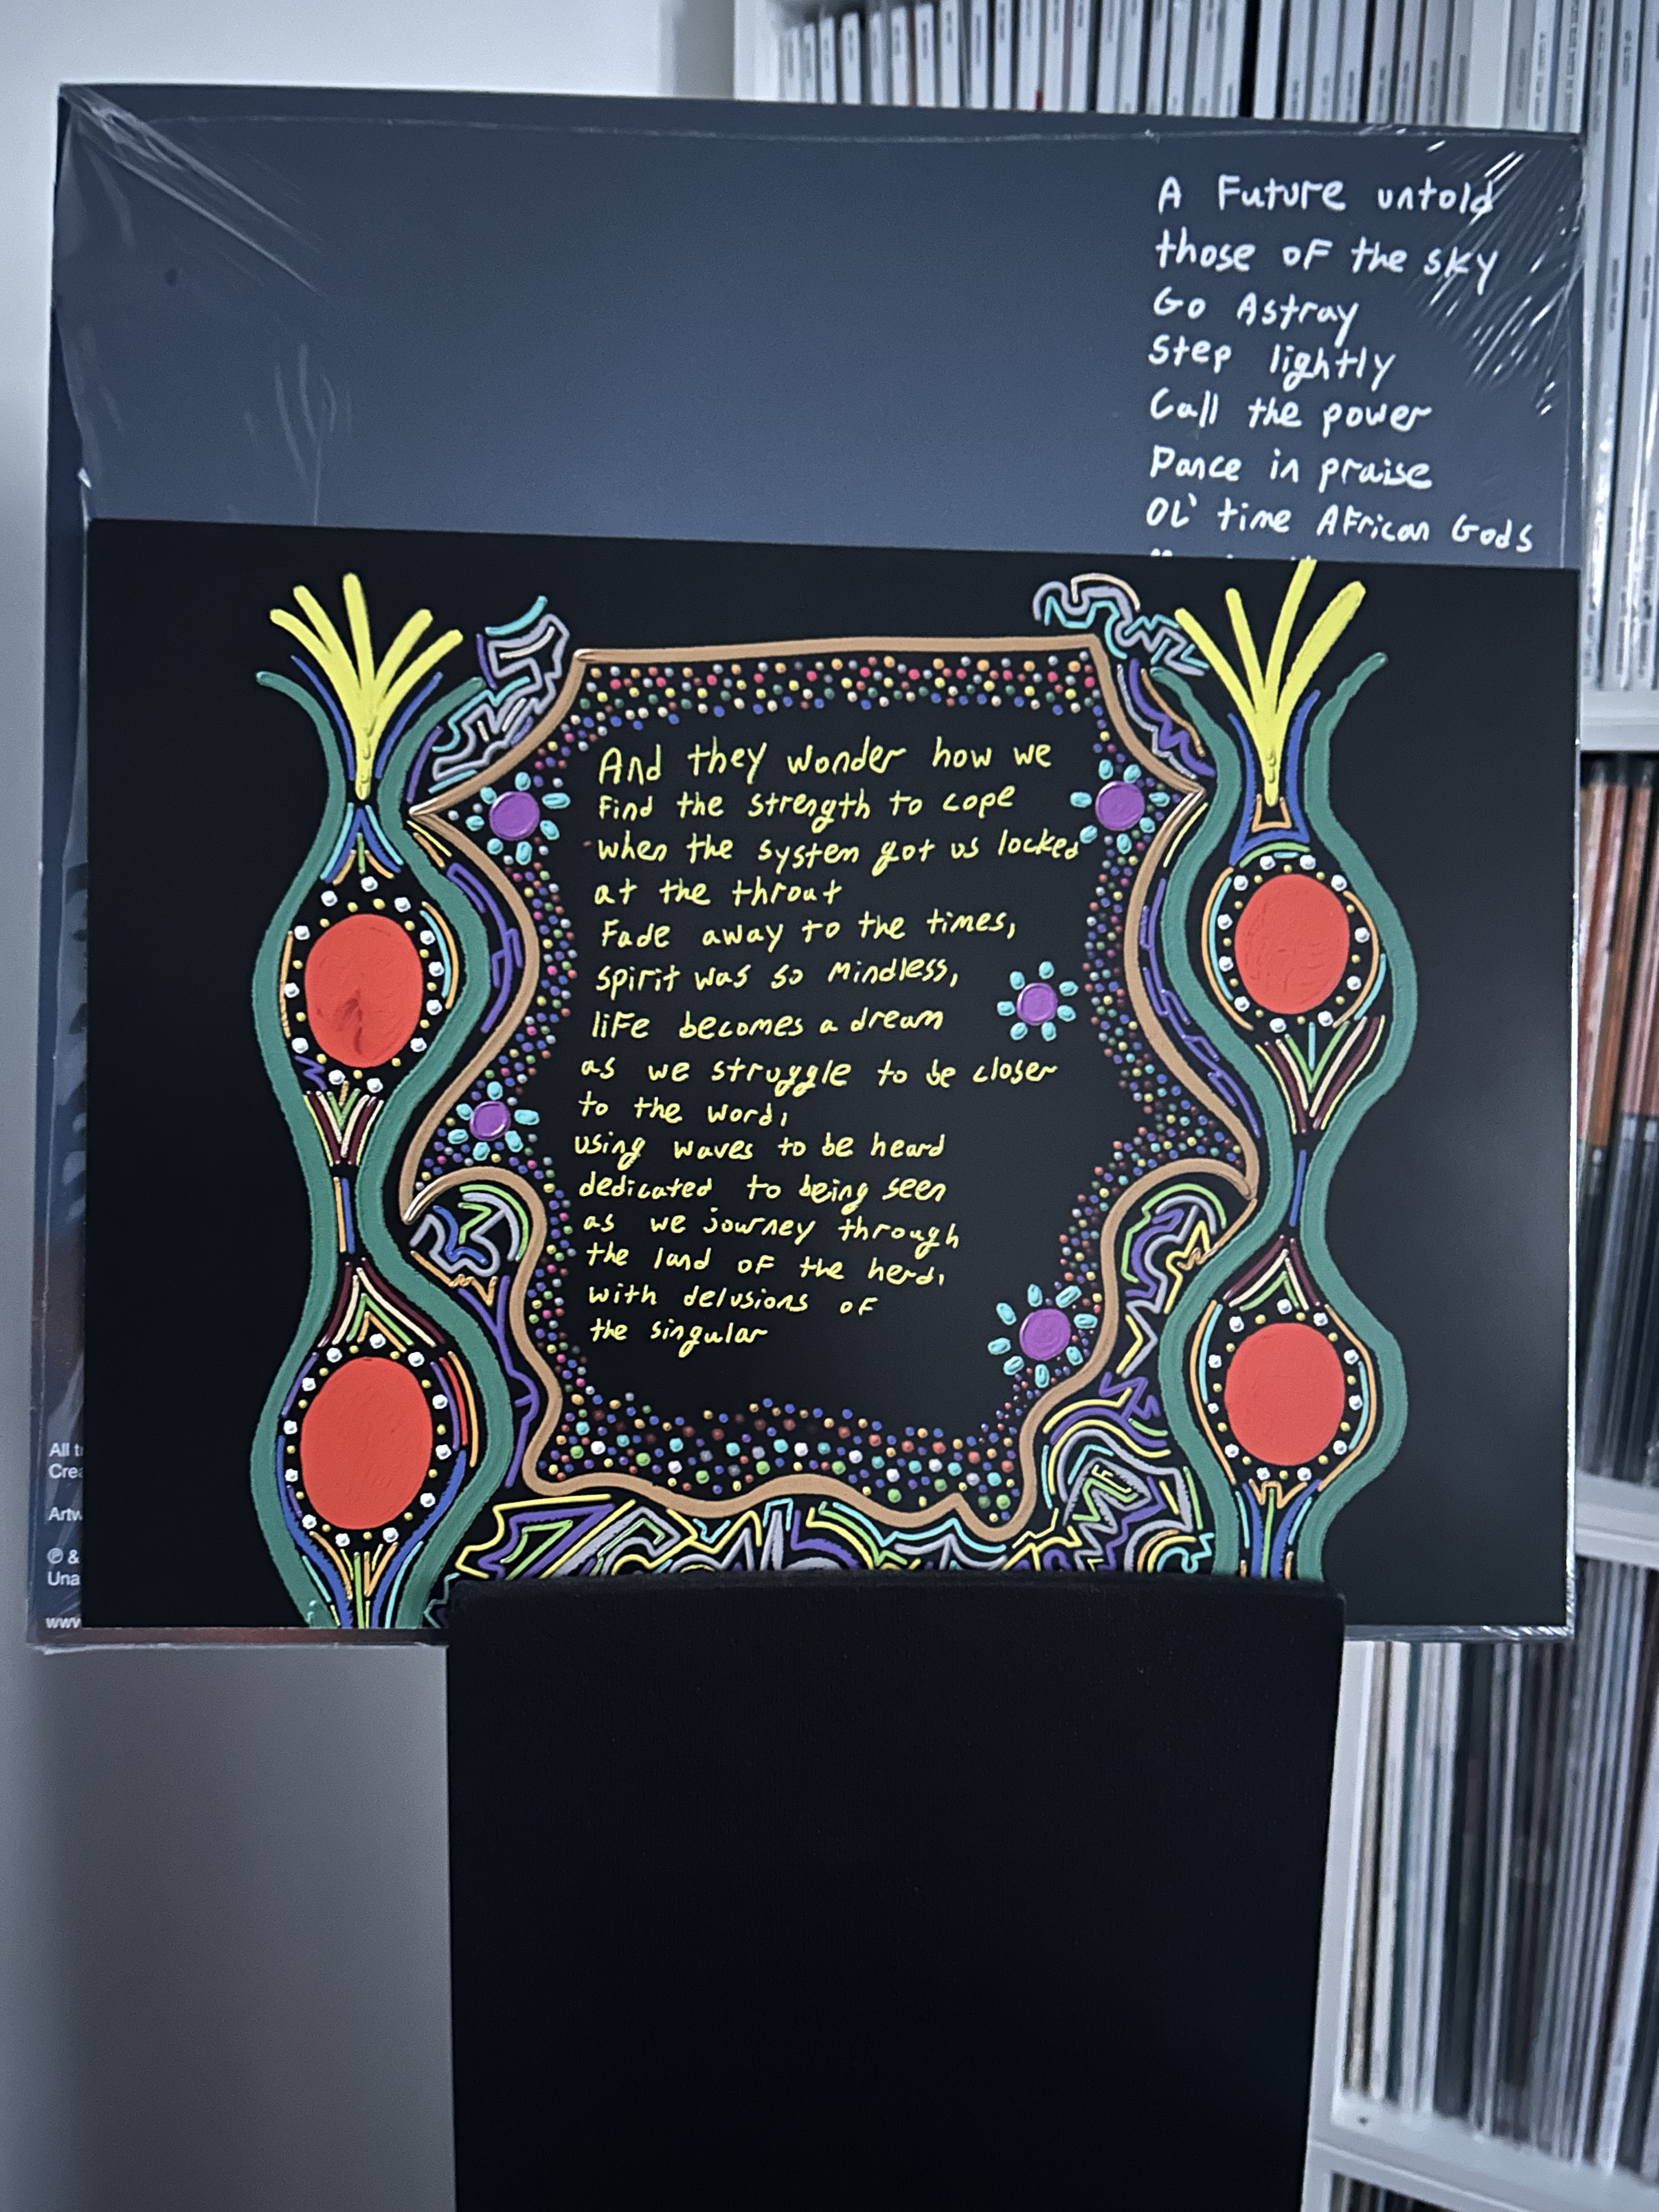 A Future untold
those of the sky
Go Astray
Step lightly
Call the power
Dance in praise
OL' time African Gods
And they wonder how we
Find the strength to cope
when the system got us locked
at the throat
Fade away to the times,
spirit was so Mindless,
life becomes a dream
as we struggle to be closer
to the word,
using waves to be heard
dedicated to being seen
as we journey through
the land of the herd,
with delusions of
the singular
All
Artw
℗ &
Una
www